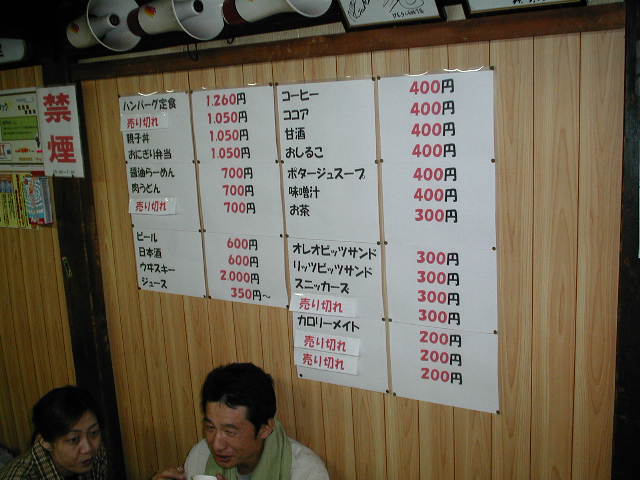 禁煙
ハンバーグ定食 1.260円
売り切れ 1.050円
親子丼 1.050円
おにぎり弁当 1.050円
醤油らーめん 700円
肉うどん 700円
売り切れ 700円
ビール 600円
日本酒 600円
ウヰスキー 2.000円
ジュース 350円～
コーヒー 400円
ココア 400円
甘酒 400円
おしるこ 400円
ポタージュスープ 400円
味噌汁 400円
お茶 300円
オレオビッツサンド 300円
リッツビッツサンド 300円
スニッカーズ 300円
売り切れ 300円
カロリーメイト 200円
売り切れ 200円
売り切れ 200円